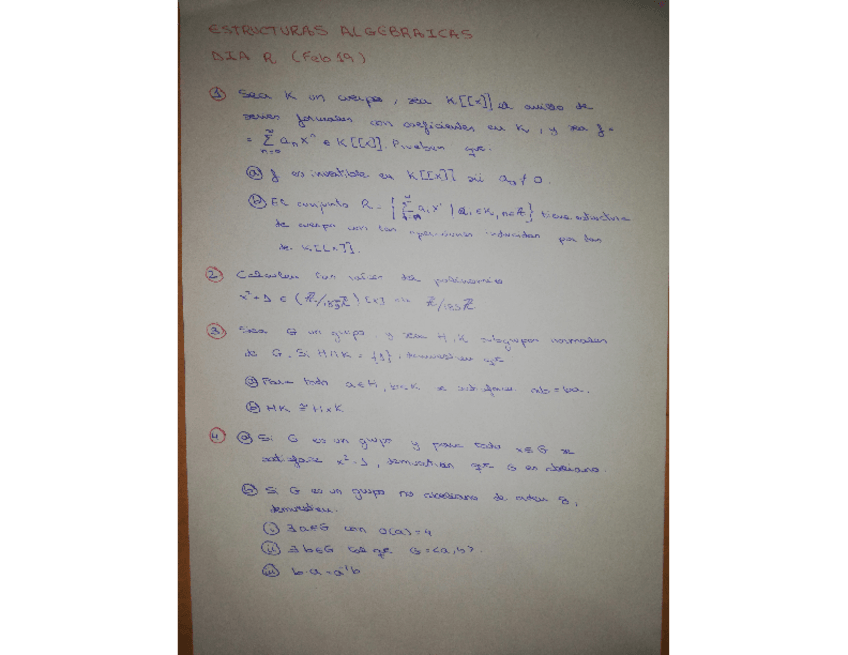 ESTRUCTURAS ALGEBRAICAS
DIA R (Feb 19)
① Sea K un cuerpo, sea K[[x]] el anillo de
series formales con coeficientes en K, y sea f =
= ∑_{n=0}^{∞} a_n x^n ∈ K[[x]]. Prueban que.
ⓐ f es invertible en K[[x]] sii a_0 ≠ 0.
ⓑ El conjunto R = { ∑ a_i x^i | a_i ∈ K, n ∈ Z } tiene estructura
de cuerpo con las operaciones inducidas por las
de K[[x]].
② Calcular las raíces del polinomio
x²+1 ∈ (Z/185Z)[x] en Z/185Z
③ Sea G un grupo, y sea H, K subgrupos normales
de G. Si H∩K = {1}, demuestren que
ⓐ Para todo a∈H, b∈K se satisface ab=ba.
ⓑ HK ≅ H×K
④ ⓐ Si G es un grupo y para todo x∈G se
satisface x²=1, demuestren que G es abeliano.
ⓑ Si G es un grupo no abeliano de orden 8,
demuestren.
ⓘ ∃a∈G con O(a)=4
ⓘⓘ ∃b∈G tal que G=<a,b>.
ⓘⓘⓘ b·a=a⁻¹b